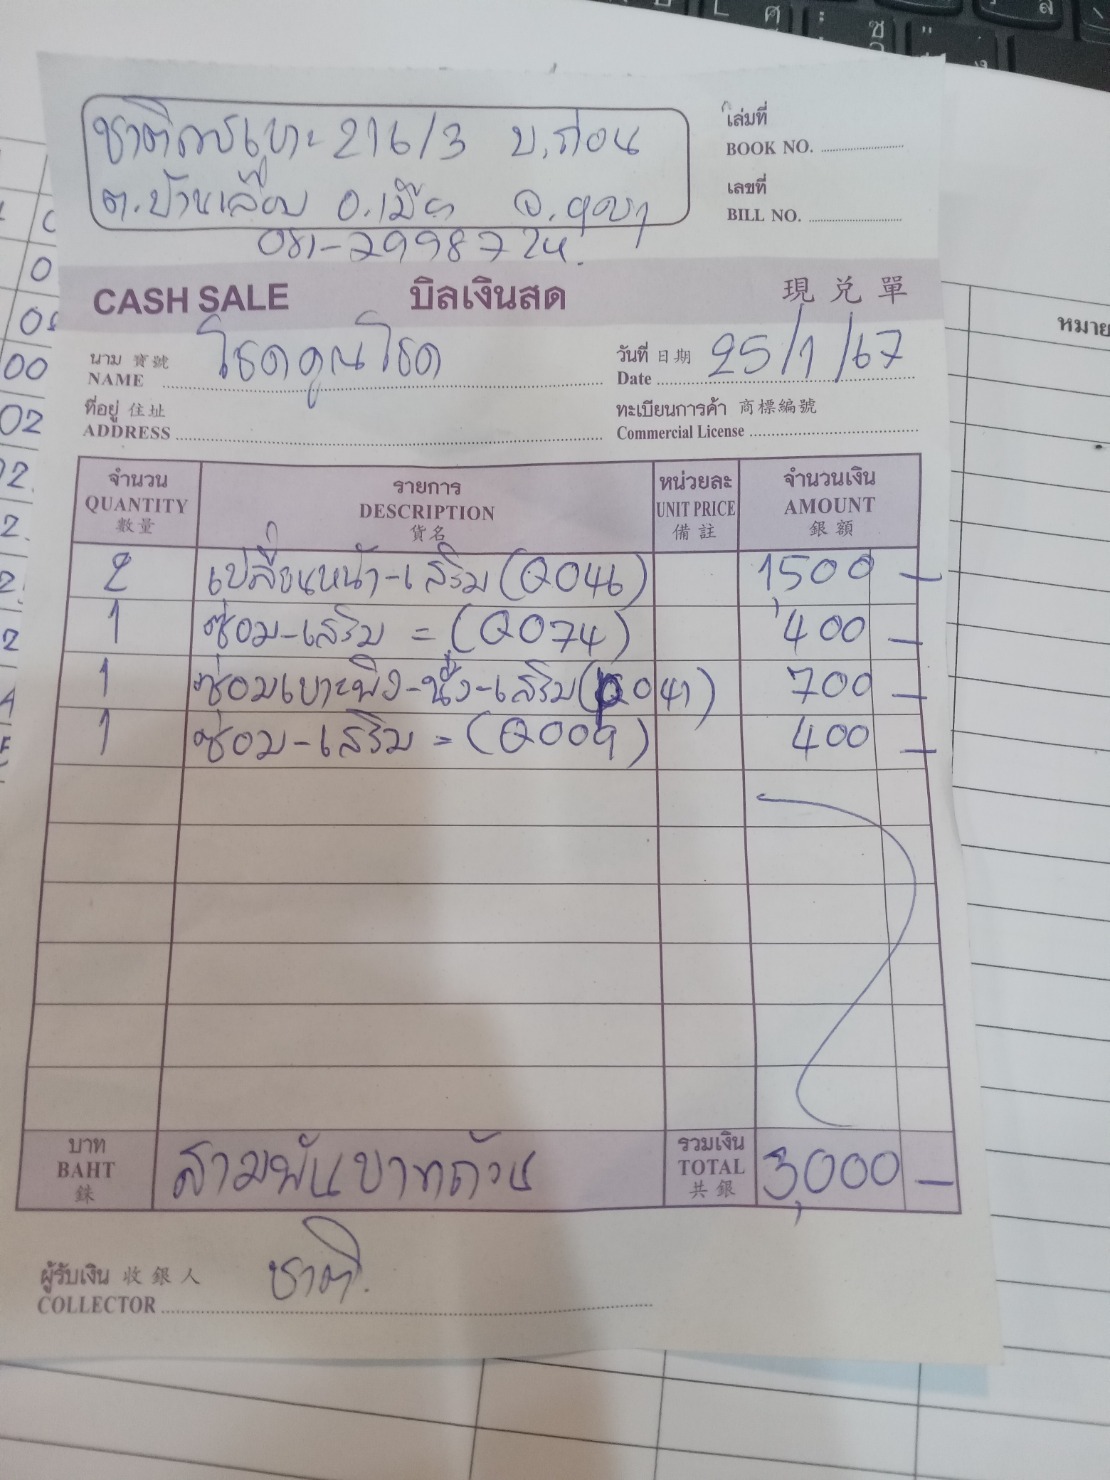 เล่มที่
BOOK NO.
เลขที่
BILL NO.
ชาติการเบาะ 216/3 บ.ก่อน
ต.บ้านเลื่อม อ.เมือง จ.อุดร
081-2998724.
CASH SALE บิลเงินสด 現兑單
นาม 寶號 โชคคูณโชค
NAME
วันที่ 日期 25/1/67
Date
ที่อยู่ 住址
ADDRESS
ทะเบียนการค้า 商標編號
Commercial License
จำนวน รายการ หน่วยละ จำนวนเงิน
QUANTITY DESCRIPTION UNIT PRICE AMOUNT
數量 貨名 備註 銀額
2 เปลี่ยนหน้า-เสริม (Q046) 1,500 -
1 ซ่อม-เสริม = (Q074) 400 -
1 ซ่อมเบาะพิง-นั่ง-เสริม (Q041) 700 -
1 ซ่อม-เสริม = (Q009) 400 -
บาท
BAHT
銖
สามพันบาทถ้วน
รวมเงิน
TOTAL
共銀
3,000 -
ผู้รับเงิน 收銀人 ชาติ.
COLLECTOR
หมาย